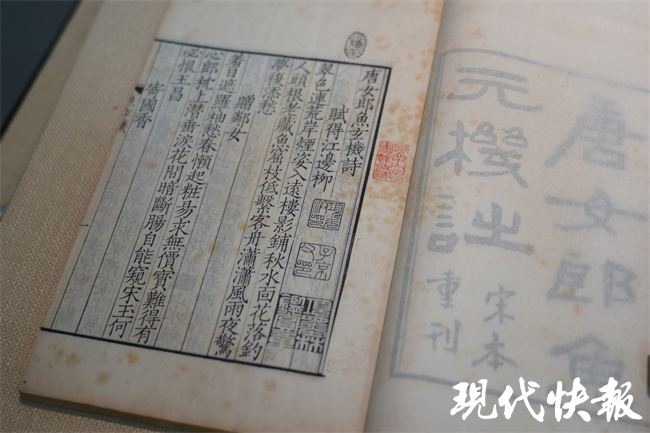 唐女郎魚
元機詩
宋本
重刊
唐女郎魚玄機詩
賦得江邊柳
翠色連荒岸煙姿入遠樓影鋪秋水面花落釣
人頭根老藏魚窟枝低繫客舟瀟瀟風雨夜驚
夢復添愁
贈鄰女
羞日遮羅袖愁春懶起粧易求無價寶難得有
心郎枕上潛垂淚花間暗斷腸自能窺宋玉何
必恨王昌
寄國香
一
現代快報